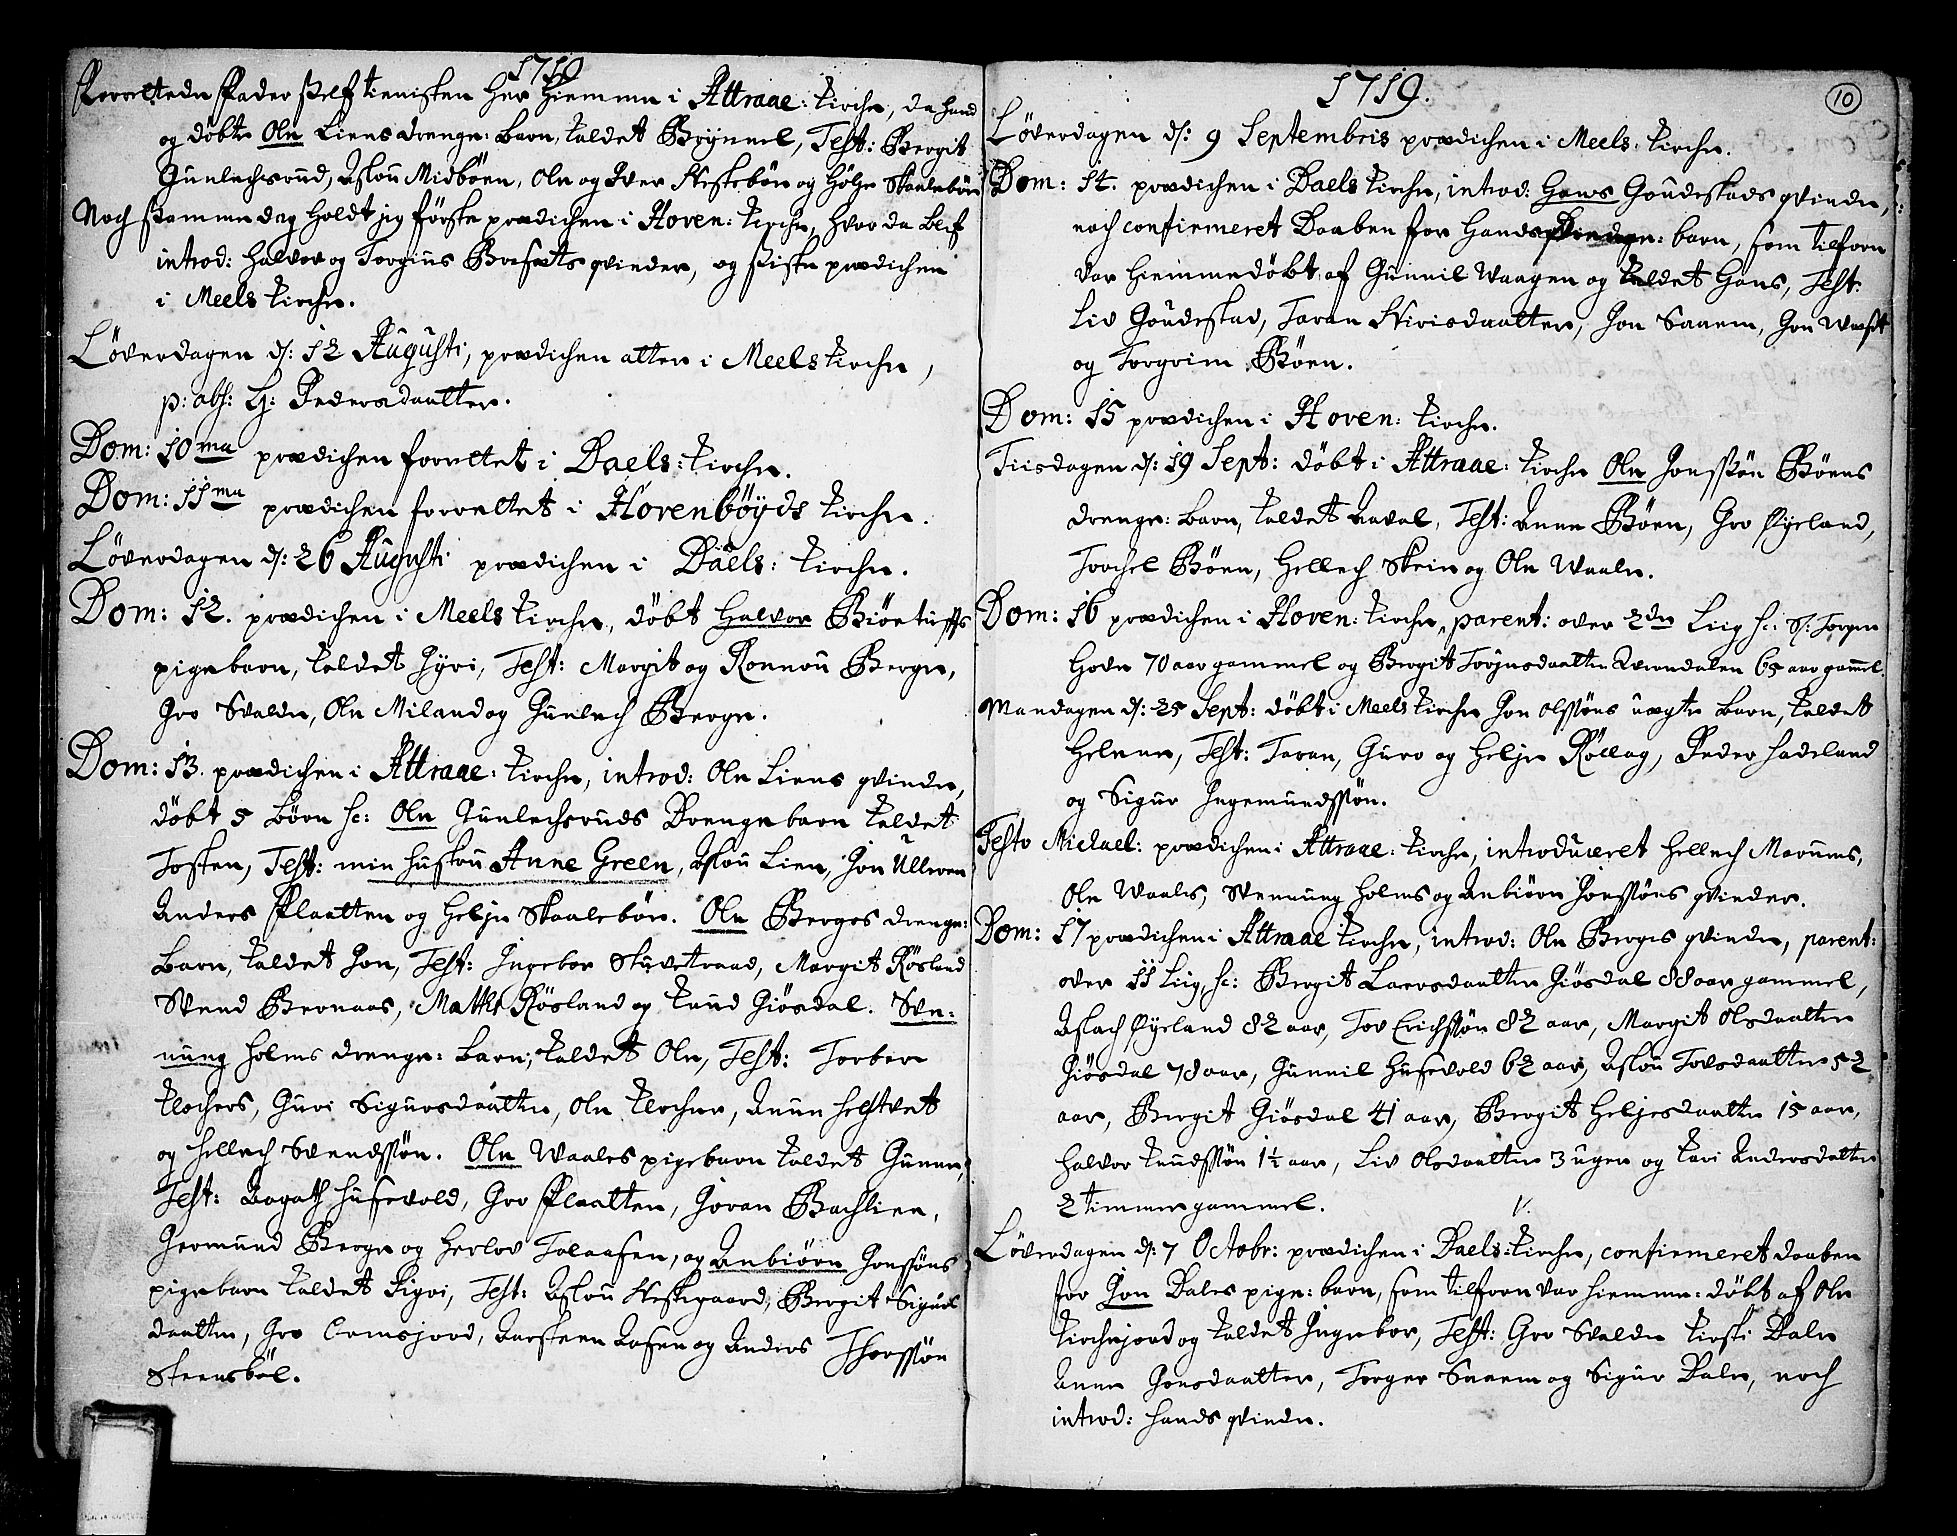 1719
Forrettede Fader self tienisten her hiemme i Attraae: Kirche, da hand
og döbte Ole Liens drenge: barn, kaldet Brynnel, Test: Bergit
Gunlechsrud, Aslou Midböen, Ole og Iver Heskebön og Hölje Skaaleböen
Noch samme dag holdt jeg förske prædichen i Hoven: Kirche, hvor da blef
introd: Halvor og Torgius qvinder, og siste prædichen
i Meels Kirche.
Löverdagen d: 12 Augusti, prædichen atter i Meels Kirche,
p: abs: Hr: Pedersdaatter.
Dom: 10ma prædichen forrettet i Daels: Kirche.
Dom: 11ma prædichen forrettet i Hovenböyds Kirche.
Löverdagen d: 26 Augusti prædichen i Daels: Kirche.
Dom: 12. prædichen i Meels Kirche, döbt Halvor Biörtuffts
pigebarn, kaldet Jyri, Test: Margit og Ronnou Berge,
Gro Svalde, Ole Miland og Gunlech Berge.
Dom: 13. prædichen i Attraae: Kirche, introd: Ole Liens qvinde,
döbt 5 börn sc: Ole Gunlechsruds Drengebarn kaldet
Tosten, Test: min hustrou Anne Green, Aslou Lien, Jon Ulleren
Anders Plaatten og Helje Skaaleböe. Ole Berges drenge:
barn, kaldet Jon, Test: Ingebor Skuvetraad, Margit Rösland
Svend Bernaas, Mattis Rösland og Knud Giösdal. Sve:
nung Holms drenge: barn, kaldet Ole, Test: Torber
Klochers, Guri Sigursdaatter, Ole Klocher, Anne Helstvet
og Hellech Svendssön. Ole Waales pigebarn kaldet Gunne,
Test: Aagath Husevold, Gro Plaatten, Joran Bachlien,
Germund Berge og Herlov Tolaafsen, og Anbiörn Jonssöns
pigebarn kaldet Sigri, Test: Aslou Heskegaard, Bergit Sigurs
daatter, Gro Ormsjord, Aarsteen Aasen og Anders Thorssön
Steensböl.
1719.
10
Löverdagen d: 9 Septembris prædichen i Meels: Kirche.
Dom: 14. prædichen i Daels Kirche, introd: Hans Goudestads qvinde,
noch confirmeret Daaben for hands : barn, som tilforn
var hiemmedöbt af Gunnil Waagen og kaldet Hans, Test:
Liv Goudestad, Taran Kirisdaatter, Jon Saaem, Jon
og Torgrim Böen.
Dom: 15 prædichen i Hoven: Kirche.
Tiisdagen d: 19 Sept: döbt i Attraae: Kirche Ole Jonssön Böens
drenge: barn, kaldet Aavel, Test: Anne Böen, Gro Fyeland,
Torchel Böen, Hellech Skeie og Ole Waale.
Dom: 16 prædichen i Hoven: Kirche, parent: over 2de Liig sc: S: Torger
Hovde 70 aar gammel og Bergit Torjusdaatter 65 aar gam̄el.
Mandagen d: 25 Sept: döbt i Meels Kirche Jon Olssöns uægte barn, kaldet
Helene, Test: Taran, Guro og Helje Röllag, Peder Hadeland
og Sigur Ingemundssön.
Festo Michael: prædichen i Attraae: Kirche, introduceret Hellech Marumes,
Ole Waales, Svenung Holms og Anbiörn Jonssöns qvinder.
Dom: 17 prædichen i Attraae Kirche, introd: Ole Berges qvinde, parent:
over 11 Liig, sc: Bergit Laersdaatter Giösdal 88 aar gammel,
Aslach Fyeland 82 aar, Tov Erichssön 82 aar, Margit Olsdaatter
Giösdal 78 aar, Gunnil Husevold 62 aar, Aslou Tovsdaatter 52
aar, Bergit Giösdal 41 aar, Bergit Heljesdaatter 15 aar,
Halvor Knudssön 1½ aar, Liv Olsdaatter 3 uger og Kari Andersdatter
2 timmer gammel.
Löverdagen d: 7 Octobr: prædichen i Daels: Kirche, confirmeret daaben
for Jon Dales pige: barn, som tilforn var hiemme: döbt af Ole
Kirchejord og kaldet Ingebor, Test: Gro Svalde Kirsti Dale
Anne Jonsdaatter, Torger Saaem og Sigur Dale, noch
introd: hands qvinde.